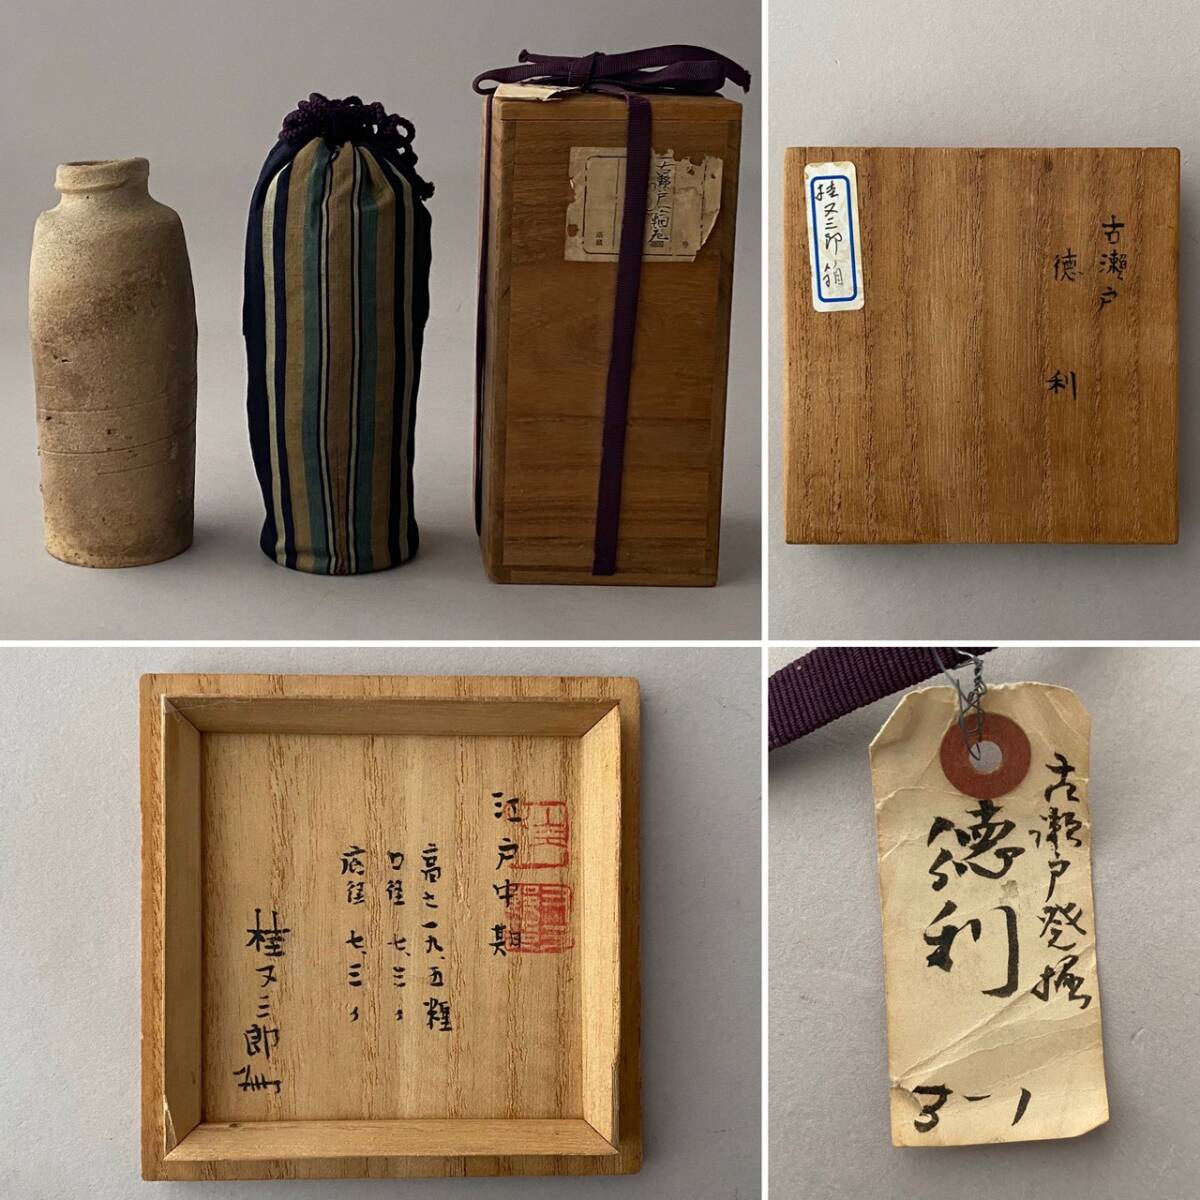 古瀬戸
古瀬戸
徳利
桂又三郎箱
江戸中期
高さ一九、五糎
口径七、三〃
底径七、三〃
桂又三郎
古瀬戸発掘
徳利
3-1